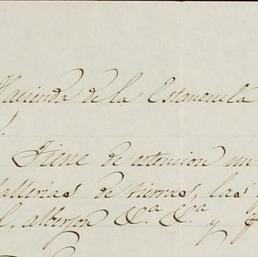 Hacienda de la Estanzuela
Tiene de extension un
allerias de tierras, las
&.ª &.ª y